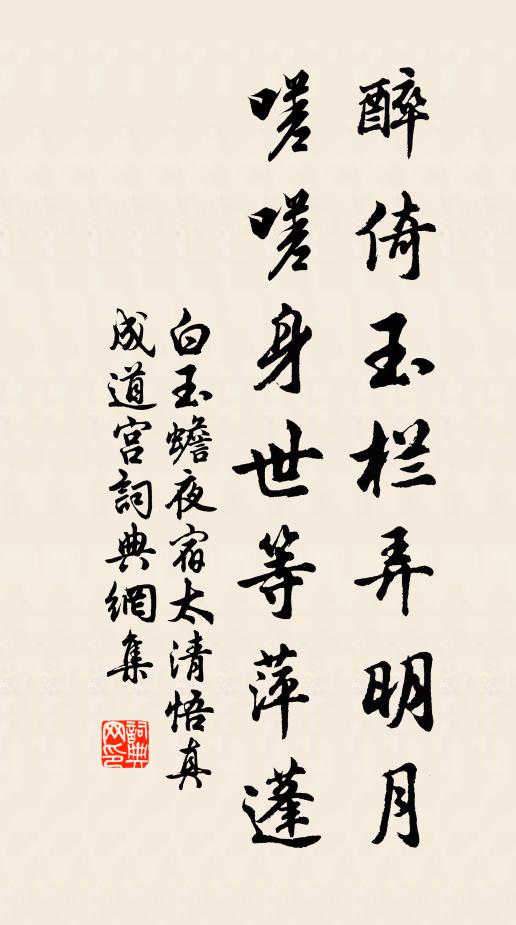 醉倚玉栏弄明月
嗟嗟身世等萍蓬
白玉蟾夜宿太清悟真
成道宫詞典網集
詞典网印